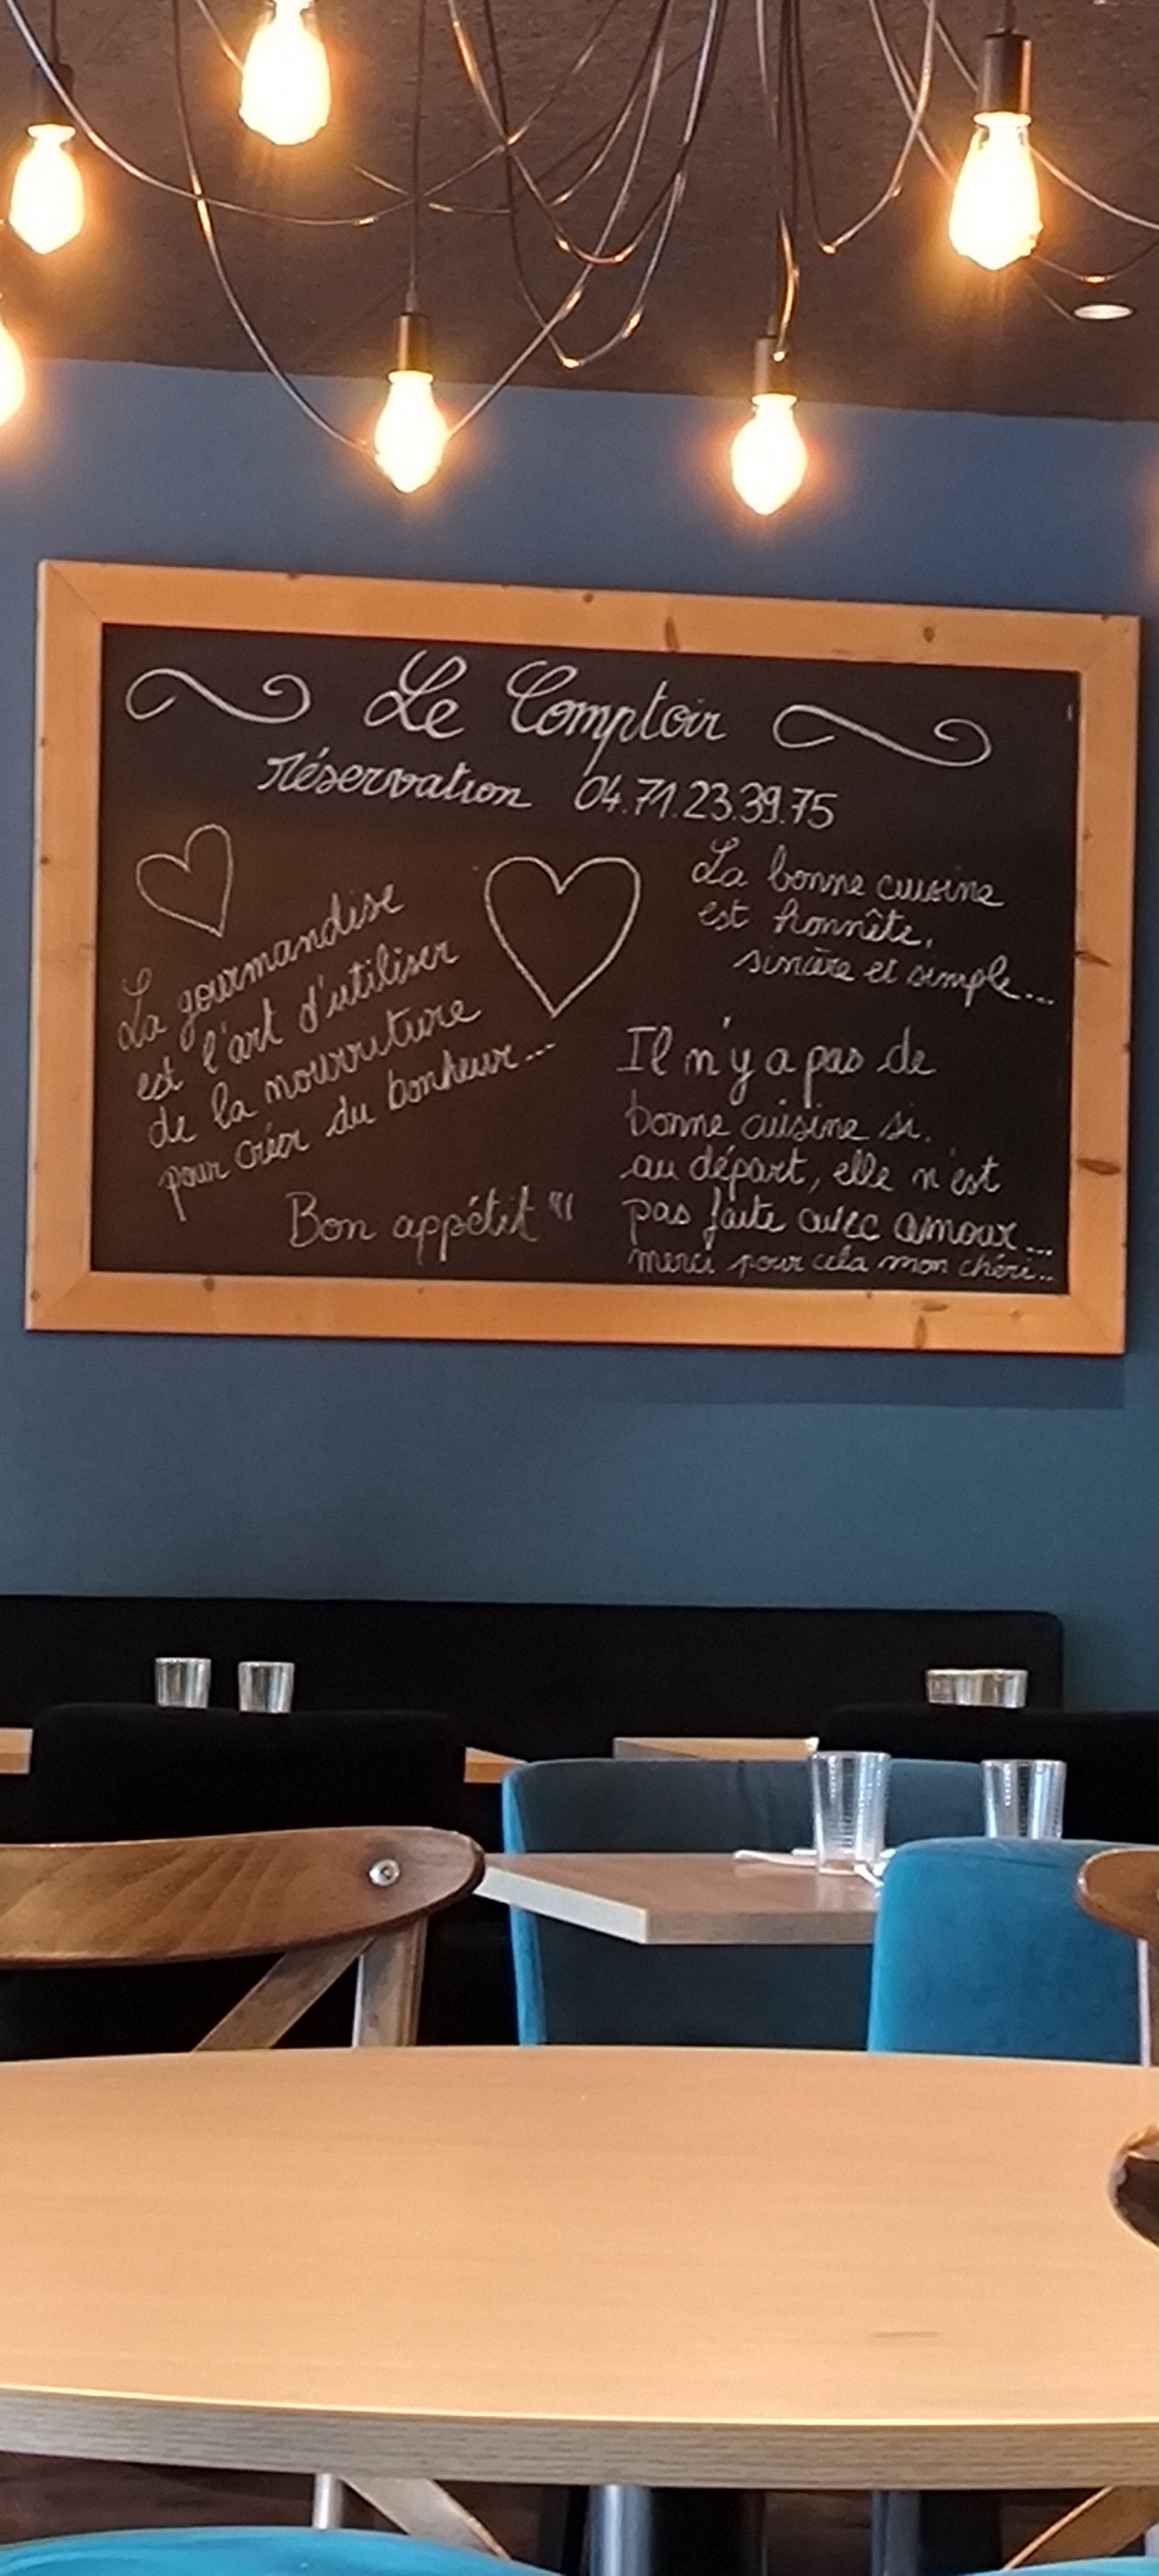 Le Comptoir
réservation 04.71.23.39.75
La gourmandise
est l'art d'utiliser
de la nourriture
pour créer du bonheur...
Bon appétit !!!
La bonne cuisine
est honnête,
sincère et simple...
Il n'y a pas de
bonne cuisine si,
au départ, elle n'est
pas faite avec amour...
merci pour cela mon chéri...